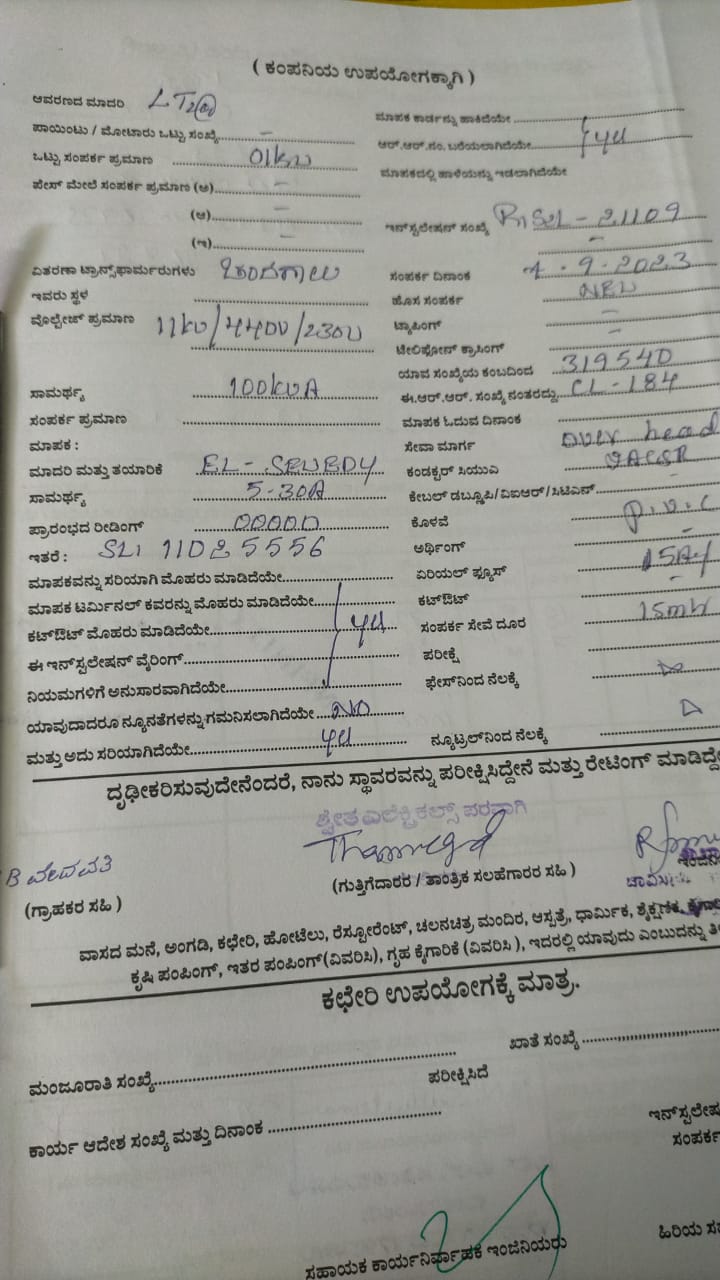 ( ಕಂಪನಿಯ ಉಪಯೋಗಕ್ಕಾಗಿ )
ಆವರಣದ ಮಾದರಿ LT2(a)
ಮಾಪಕ ಕಾರ್ಡನ್ನು ಹಾಕಿದೆಯೇ
ಪಾಯಿಂಟು / ಮೋಟಾರು ಒಟ್ಟು ಸಂಖ್ಯೆ –
ಆರ್.ಆರ್.ನಂ. ಬರೆಯಲಾಗಿದೆಯೇ
ಒಟ್ಟು ಸಂಪರ್ಕ ಪ್ರಮಾಣ 01kw
ಮಾಪಕದಲ್ಲಿ ಹಾಳೆಯನ್ನು ಇಡಲಾಗಿದೆಯೇ
ಪೇಸ್ ಮೇಲೆ ಸಂಪರ್ಕ ಪ್ರಮಾಣ (ಅ) –
(ಆ) –
ಇನ್‌ಸ್ಟಲೇಷನ್ ಸಂಖ್ಯೆ 21109
(ಇ) – –
ವಿತರಣಾ ಟ್ರಾನ್ಸ್‌ಫಾರ್ಮರುಗಳು
ಸಂಪರ್ಕ ದಿನಾಂಕ 9-2023
ಇವರು ಸ್ಥಳ
ಹೊಸ ಸಂಪರ್ಕ NEW
ವೊಲ್ಟೇಜ್ ಪ್ರಮಾಣ 11kv/440v/230v
ಟ್ಯಾಪಿಂಗ್ –
ಟೇಲಿಫೋನ್ ಕ್ರಾಸಿಂಗ್ –
ಯಾವ ಸಂಖ್ಯೆಯ ಕಂಬದಿಂದ 319540
ಸಾಮರ್ಥ್ಯ 100kvA
ಈ.ಆರ್.ಆರ್. ಸಂಖ್ಯೆ ನಂತರದ್ದು CL-184
ಸಂಪರ್ಕ ಪ್ರಮಾಣ
ಮಾಪಕ ಓದುವ ದಿನಾಂಕ
ಮಾಪಕ :
ಸೇವಾ ಮಾರ್ಗ over head
ಮಾದರಿ ಮತ್ತು ತಯಾರಿಕೆ
ಕಂಡಕ್ಟರ್ ಸಿಯುಎ
ಸಾಮರ್ಥ್ಯ 5-30A
ಕೇಬಲ್ ಡಬ್ಲ್ಯೂಪಿ/ವಿಐಆರ್/ಸಿಟಿಎನ್
ಪ್ರಾರಂಭದ ರೀಡಿಂಗ್ 00000
ಕೊಳವೆ p.v.c
ಇತರೆ : 11025556
ಅರ್ಥಿಂಗ್ –
ಮಾಪಕವನ್ನು ಸರಿಯಾಗಿ ಮೊಹರು ಮಾಡಿದೆಯೇ
ಏರಿಯಲ್ ಫ್ಯೂಸ್
ಮಾಪಕ ಟರ್ಮಿನಲ್ ಕವರನ್ನು ಮೊಹರು ಮಾಡಿದೆಯೇ
ಕಟ್‌ಔಟ್ –
ಕಟ್‌ಔಟ್ ಮೊಹರು ಮಾಡಿದೆಯೇ
ಸಂಪರ್ಕ ಸೇವೆ ದೂರ
ಈ ಇನ್‌ಸ್ಟಲೇಷನ್ ವೈರಿಂಗ್
ಪರೀಕ್ಷೆ
ನಿಯಮಗಳಿಗೆ ಅನುಸಾರವಾಗಿದೆಯೇ
ಫೇಸ್‌ನಿಂದ ನೆಲಕ್ಕೆ
ಯಾವುದಾದರೂ ನ್ಯೂನತೆಗಳನ್ನು ಗಮನಿಸಲಾಗಿದೆಯೇ No
ಮತ್ತು ಅದು ಸರಿಯಾಗಿದೆಯೇ
ನ್ಯೂಟ್ರಲ್‌ನಿಂದ ನೆಲಕ್ಕೆ
ದೃಢೀಕರಿಸುವುದೇನೆಂದರೆ, ನಾನು ಸ್ಥಾವರವನ್ನು ಪರೀಕ್ಷಿಸಿದ್ದೇನೆ ಮತ್ತು ರೇಟಿಂಗ್ ಮಾಡಿದ್ದೇ
ಶ್ವೇತ ಎಲೆಕ್ಟ್ರಿಕಲ್ಸ್ ಪರವಾಗಿ
(ಗ್ರಾಹಕರ ಸಹಿ )
(ಗುತ್ತಿಗೆದಾರರ / ತಾಂತ್ರಿಕ ಸಲಹೆಗಾರರ ಸಹಿ )
ವಾಸದ ಮನೆ, ಅಂಗಡಿ, ಕಛೇರಿ, ಹೋಟೆಲು, ರೆಸ್ಟೋರೆಂಟ್, ಚಲನಚಿತ್ರ ಮಂದಿರ, ಆಸ್ಪತ್ರೆ, ಧಾರ್ಮಿಕ, ಶೈಕ್ಷಣಿಕ,
ಕೃಷಿ ಪಂಪಿಂಗ್, ಇತರ ಪಂಪಿಂಗ್(ವಿವರಿಸಿ), ಗೃಹ ಕೈಗಾರಿಕೆ (ವಿವರಿಸಿ ), ಇದರಲ್ಲಿ ಯಾವುದು ಎಂಬುದನ್ನು ತಿ
ಕಛೇರಿ ಉಪಯೋಗಕ್ಕೆ ಮಾತ್ರ.
ಮಂಜೂರಾತಿ ಸಂಖ್ಯೆ
ಖಾತೆ ಸಂಖ್ಯೆ
ಪರೀಕ್ಷಿಸಿದೆ
ಕಾರ್ಯ ಆದೇಶ ಸಂಖ್ಯೆ ಮತ್ತು ದಿನಾಂಕ
ಇನ್‌ಸ್ಟಲೇಷ
ಸಂಪರ್ಕ
ಸಹಾಯಕ ಕಾರ್ಯನಿರ್ವಾಹಕ ಇಂಜಿನಿಯರು
ಹಿರಿಯ ಸಹ